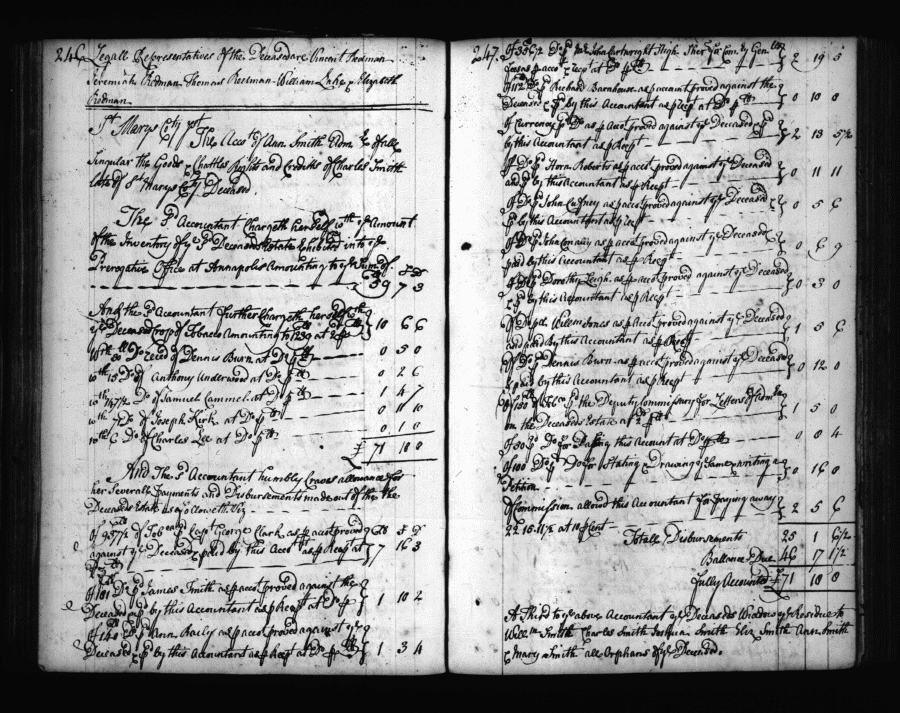 246 Legall Representatives of the Deceased are Vincent Redman
Jeremiah Redman Thomas Redman William Luke & Elizabeth
Redman
St. Marys Cty st
The Acct of Ann Smith Adm &c of all
Singular the Goods Chattles Rights and Credits of Charles Smith
Late of St Marys Cty Deceased.
The sd Accountant Chargeth herself wth ye Amount
of the Inventory of ye sd Deceaseds Estate Exhibited into ye
Prerogative Office at Annapolis Amounting to ye Sum of
59 7 3
And the sd Accountant further Chargeth herself with
ye Deceaseds Crop of Tobacco Amounting to 1239 at 10 6 6
Do recd of Dennis Burn at Do 0 5 0
wth 15 Do of Anthony Underwood at Do 0 2 6
Do of Samuel Cammel at Do 1 4 7
Do of Joseph Kirk at Do 0 11 10
Do of Charles Lee at Do 0 1 0
£ 71 18 8
And The sd Accountant humbly Craves allowance for
her Severall Payments and Disbursements made out of the
Deceaseds Estate as followeth Viz
of 937½ Tob Capt George Clark as p acct proved
against ye Deceased & pd by this Acct as p Rect at 7 16 3
of 181 Do pd James Smith as p acct proved against the
Deceased & pd by this Accountant as p Rect at Do 1 10 2
of 140 Do pd Ann Baily as p acct proved against ye
Deceased & pd by this Accountant as p Rect at Do 1 3 4
247 of 356½ Do pd Mr John Cartwright High Sherr for Com & Gen
fees as p acct & Rect at Do 2 19 5
of 112 Do pd Richard Barnhouse as p account proved against the
Deceased & pd by this Accountant as p Rect at Do 0 10 8
of Currency pd Do as p Acct proved against ye Deceased & pd
by this Accountant as p Rect 2 13 5½
of Do pd Roberts as p acct proved against ye Deceased
and pd by this Accountant as p Rect 0 11 11
of Do pd John as p acct proved against ye Deceased
pd by this Accountant as p Rect 0 5 6
of Do pd John as p acct proved against ye Deceased
paid by this Accountant as p Rect 0 6 9
of Do pd Dorothy Leigh as p acct proved against ye Deceased
& pd by this Accountant as p Rect 0 3 0
of Do pd Willm Jones as p Acct proved against ye Deceased
and paid By this Accountant as p Rect 1 5 6
of Do pd Dennis Burn as p acct proved against ye Deceased
& paid by this Accountant as p Rect 0 12 0
of 150 pd the Deputy Commissary for Letters of
on the Deceaseds Estate at 1 5 0
of 50 pd Do for Passing this Account at Do 0 8 4
of 100 Do pd Do for Stating & Drawing ye Same & writing a
Petition 0 16 8
of Commission allowed this Accountant for paying away
22 15 11½ at 10 p Cent 2 5 6
Totall Disbursements 25 1 6½
Ballance Due 46 17 1½
fully Accounted £ 71 18 8
A Third to ye above Accountant ye Deceaseds Widdow ye Residue to
Willm Smith Charles Smith Joshua Smith Eliz Smith Ann Smith
& Mary Smith all Orphans of ye Deceased.